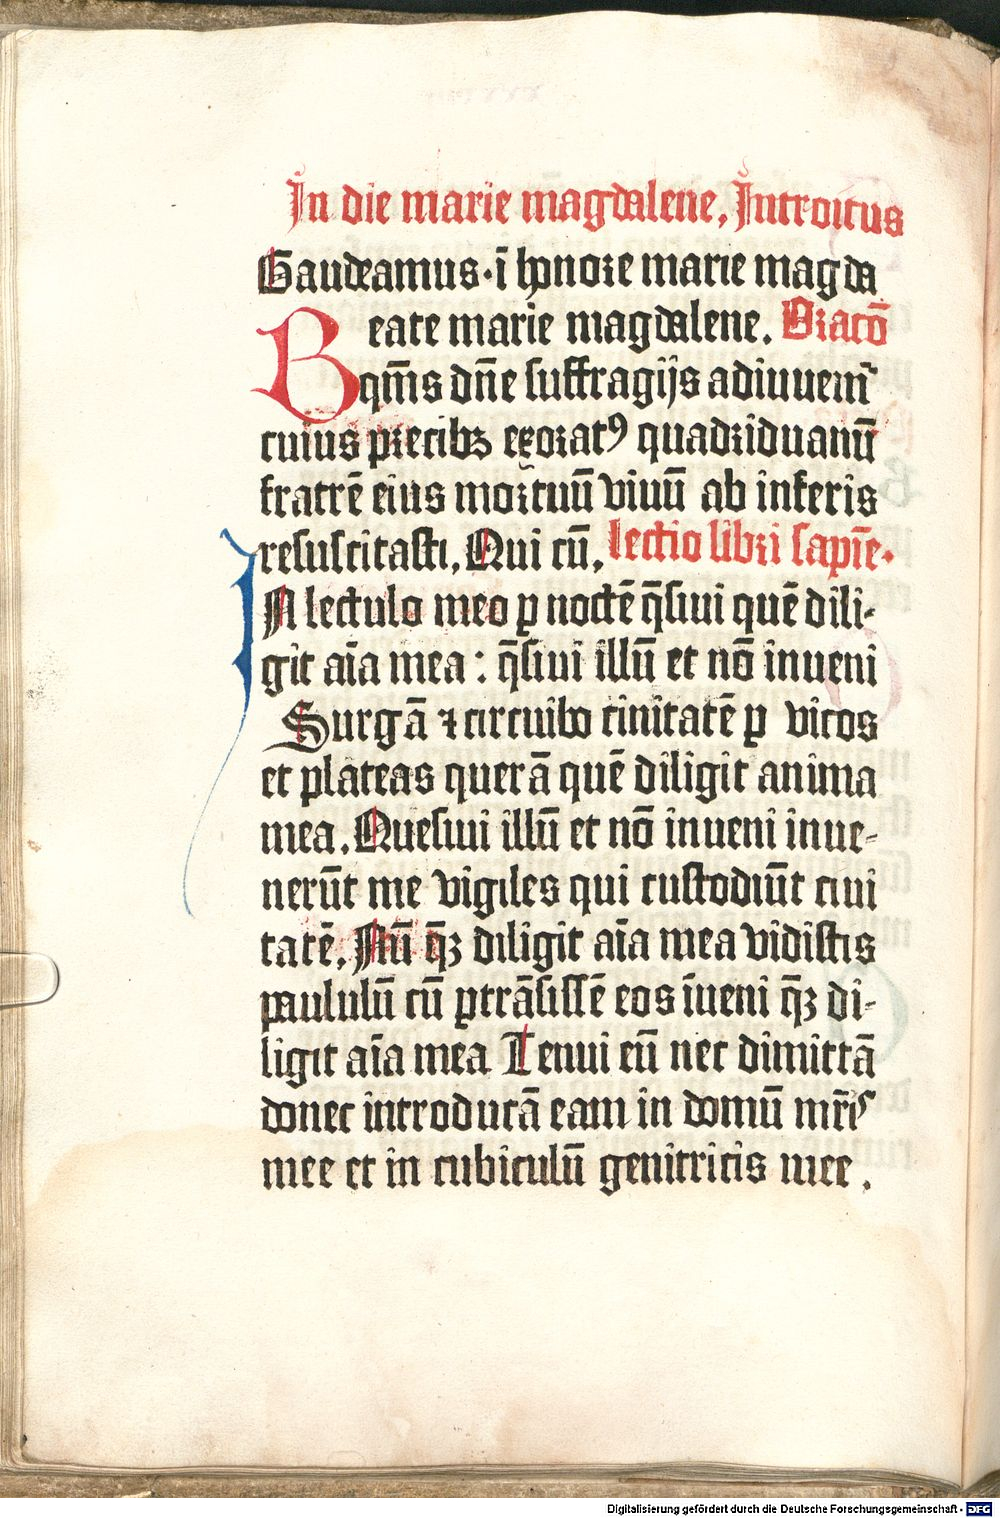 In die marie magdalene. Introitus
Gaudeamus · ī hpnore marie magda
Beate marie magdalene. Oracō
qm̄s dn̄e suffragijs adiuuem̄
cuius precibꝫ exoratꝰ quadriduanū
fratrē eius mortuū viuū ab inferis
resuscitasti. Qui cū. lectio libri sapīe.
In lectulo meo ꝑ noctē q̄siui quē dili-
git aīa mea : q̄siui illū et nō inueni
Surgā ⁊ circuibo ciuitatē ꝑ vicos
et plateas querā quē diligit anima
mea. Quesiui illū et nō inueni inue-
nerūt me vigiles qui custodiūt ciui
tatē. Nū q̄ꝫ diligit aīa mea vidistis
paululū cū ꝑtrāsissē eos īueni q̄ꝫ di-
ligit aīa mea Tenui eū nec dimittā
donec introducā eam in domū mr̄is
mee et in cubiculū genitricis mee.
Digitalisierung gefördert durch die Deutsche Forschungsgemeinschaft - DFG